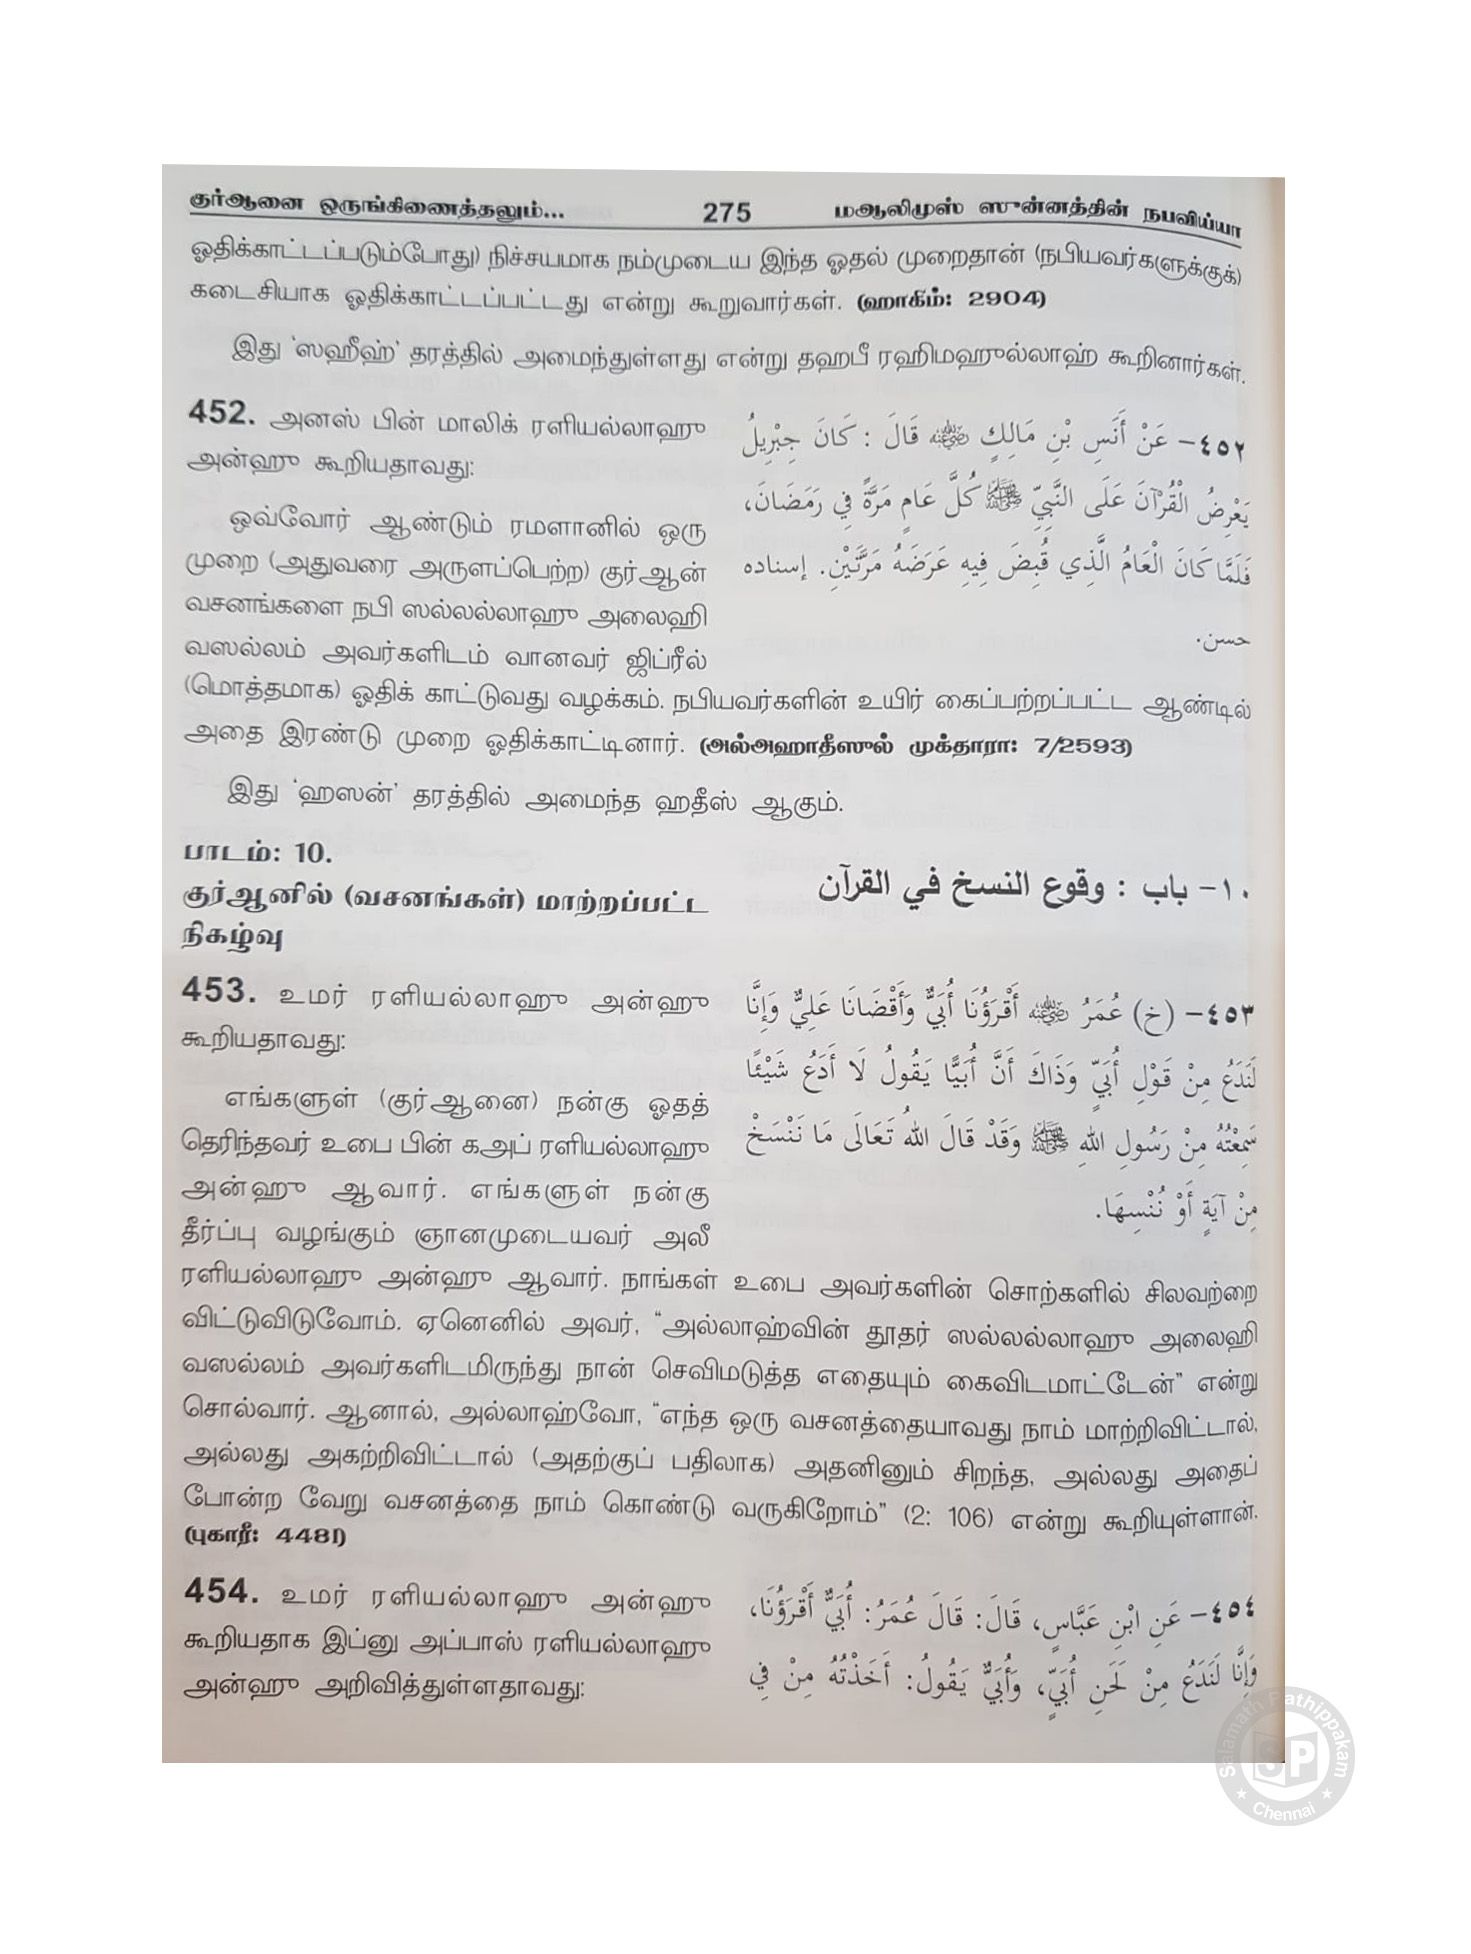 குர்ஆனை ஒருங்கிணைத்தலும்... 275 மஆலிமுஸ் ஸுன்னத்தின் நபவிய்யா
ஓதிக்காட்டப்படும்போது) நிச்சயமாக நம்முடைய இந்த ஓதல் முறைதான் (நபியவர்களுக்குக்)
கடைசியாக ஓதிக்காட்டப்பட்டது என்று கூறுவார்கள். (ஹாகிம்: 2904)
இது 'ஸஹீஹ்' தரத்தில் அமைந்துள்ளது என்று தஹபீ ரஹிமஹுல்லாஹ் கூறினார்கள்.
452. அனஸ் பின் மாலிக் ரளியல்லாஹு
அன்ஹு கூறியதாவது:
ஒவ்வோர் ஆண்டும் ரமளானில் ஒரு
முறை (அதுவரை அருளப்பெற்ற) குர்ஆன்
வசனங்களை நபி ஸல்லல்லாஹு அலைஹி
வஸல்லம் அவர்களிடம் வானவர் ஜிப்ரீல்
٤٥٢- عَنْ أَنَسِ بْنِ مَالِكٍ ﷺ قَالَ : كَانَ جِبْرِيلُ
يَعْرِضُ الْقُرْآنَ عَلَى النَّبِيِّ ﷺ كُلَّ عَامٍ مَرَّةً فِي رَمَضَانَ،
فَلَمَّا كَانَ الْعَامُ الَّذِي قُبِضَ فِيهِ عَرَضَهُ مَرَّتَيْنِ. إسناده
حسن.
(மொத்தமாக) ஓதிக் காட்டுவது வழக்கம். நபியவர்களின் உயிர் கைப்பற்றப்பட்ட ஆண்டில்
அதை இரண்டு முறை ஓதிக்காட்டினார். (அல்அஹாதீஸுல் முக்தாரா: 7/2593)
இது 'ஹஸன்' தரத்தில் அமைந்த ஹதீஸ் ஆகும்.
பாடம்: 10.
குர்ஆனில் (வசனங்கள்) மாற்றப்பட்ட
நிகழ்வு
١٠- باب : وقوع النسخ في القرآن
453. உமர் ரளியல்லாஹு அன்ஹு
கூறியதாவது:
எங்களுள் (குர்ஆனை) நன்கு ஓதத்
தெரிந்தவர் உபை பின் கஅப் ரளியல்லாஹு
அன்ஹு ஆவார். எங்களுள் நன்கு
தீர்ப்பு வழங்கும் ஞானமுடையவர் அலீ
٤٥٣- (خ) عُمَرُ رضي الله عنه أَقْرَؤُنَا أُبَيٌّ وَأَقْضَانَا عَلِيٌّ وَإِنَّا
لَنَدَعُ مِنْ قَوْلِ أُبَيٍّ وَذَاكَ أَنَّ أُبَيًّا يَقُولُ لَا أَدَعُ شَيْئًا
سَمِعْتُهُ مِنْ رَسُولِ اللهِ ﷺ وَقَدْ قَالَ اللهُ تَعَالَى مَا نَنْسَخْ
مِنْ آيَةٍ أَوْ نُنْسِهَا.
ரளியல்லாஹு அன்ஹு ஆவார். நாங்கள் உபை அவர்களின் சொற்களில் சிலவற்றை
விட்டுவிடுவோம். ஏனெனில் அவர், "அல்லாஹ்வின் தூதர் ஸல்லல்லாஹு அலைஹி
வஸல்லம் அவர்களிடமிருந்து நான் செவிமடுத்த எதையும் கைவிடமாட்டேன்" என்று
சொல்வார். ஆனால், அல்லாஹ்வோ, "எந்த ஒரு வசனத்தையாவது நாம் மாற்றிவிட்டால்,
அல்லது அகற்றிவிட்டால் (அதற்குப் பதிலாக) அதனினும் சிறந்த, அல்லது அதைப்
போன்ற வேறு வசனத்தை நாம் கொண்டு வருகிறோம்" (2: 106) என்று கூறியுள்ளான்.
(புகாரீ: 4481)
454. உமர் ரளியல்லாஹு அன்ஹு
கூறியதாக இப்னு அப்பாஸ் ரளியல்லாஹு
அன்ஹு அறிவித்துள்ளதாவது:
٤٥٤- عَنِ ابْنِ عَبَّاسٍ، قَالَ: قَالَ عُمَرُ: أُبَيٌّ أَقْرَؤُنَا،
وَإِنَّا لَنَدَعُ مِنْ لَحَنِ أُبَيٍّ، وَأُبَيٌّ يَقُولُ: أَخَذْتُهُ مِنْ فِي
Salamath Pathippakam
SP
Chennai